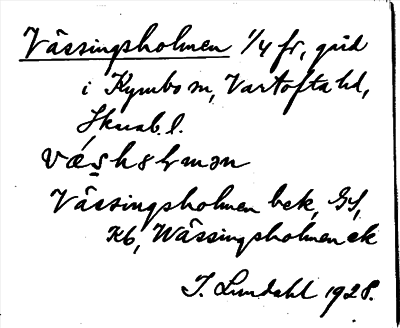 Vässingsholmen 1/4 fr, gräd
i Kymbo sn, Vartofta hd,
Skarab. l.
Vässingsholmen bek, GS,
Kb, Wässingsholmen ek
J. Lundahl 1928.